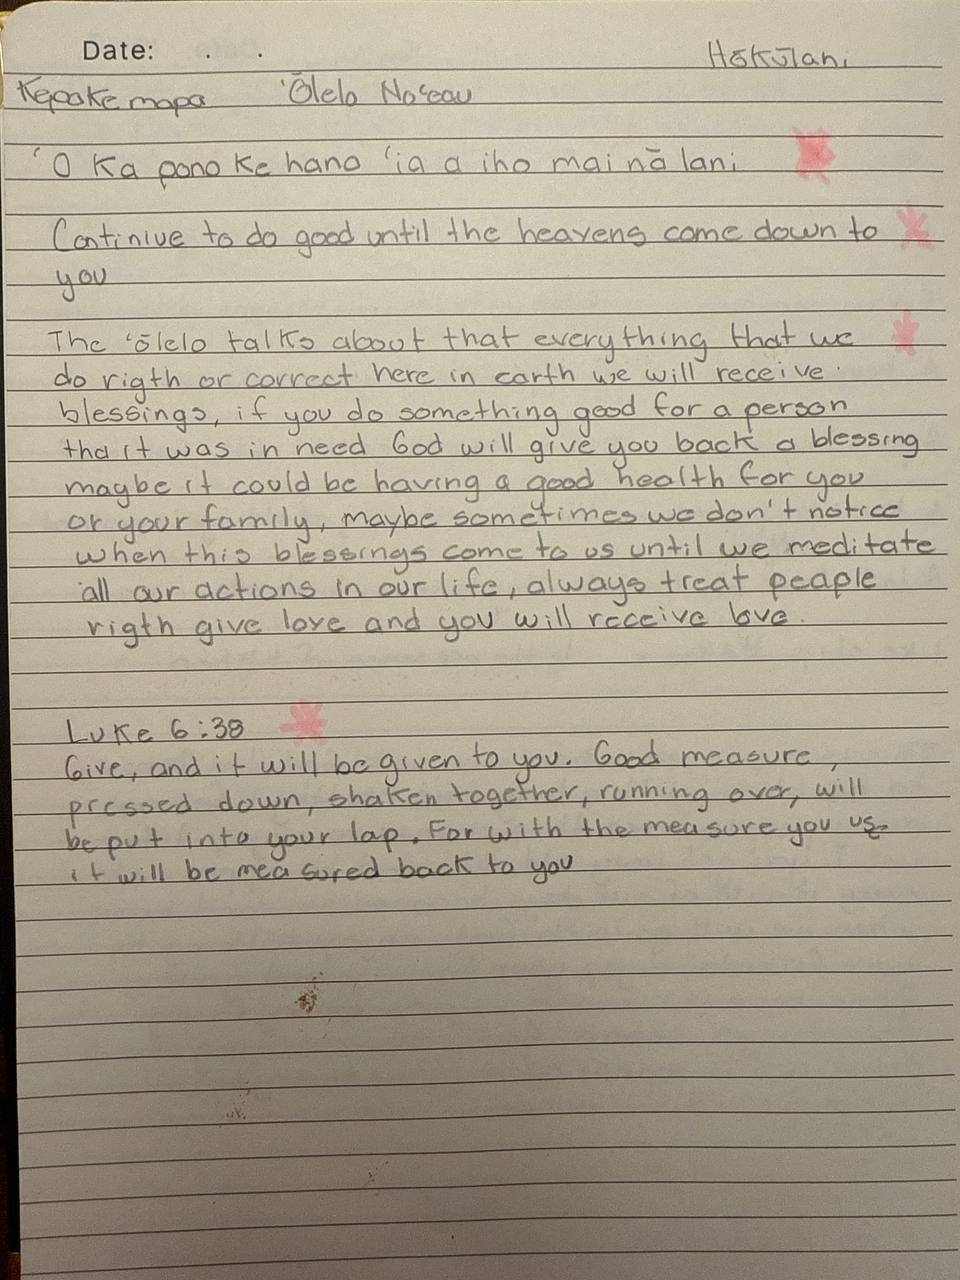 Date: . .
Hōkūlani
Kepakemapa 'Ōlelo No'eau
'O Ka pono Ke hana 'ia a iho mai nā lani
Continiue to do good until the heavens come down to
you
The 'ōlelo talks about that everything that we
do rigth or correct here in earth we will receive
blessings, if you do something good for a person
tha it was in need God will give you back a blessing
maybe it could be having a good health for you
or your family, maybe sometimes we don't notice
when this blessings come to us until we meditate
all our actions in our life, always treat peaple
rigth give love and you will receive love.
Luke 6:38
Give, and it will be given to you. Good measure,
pressed down, shaken together, running over, will
be put into your lap. For with the measure you use
it will be measured back to you